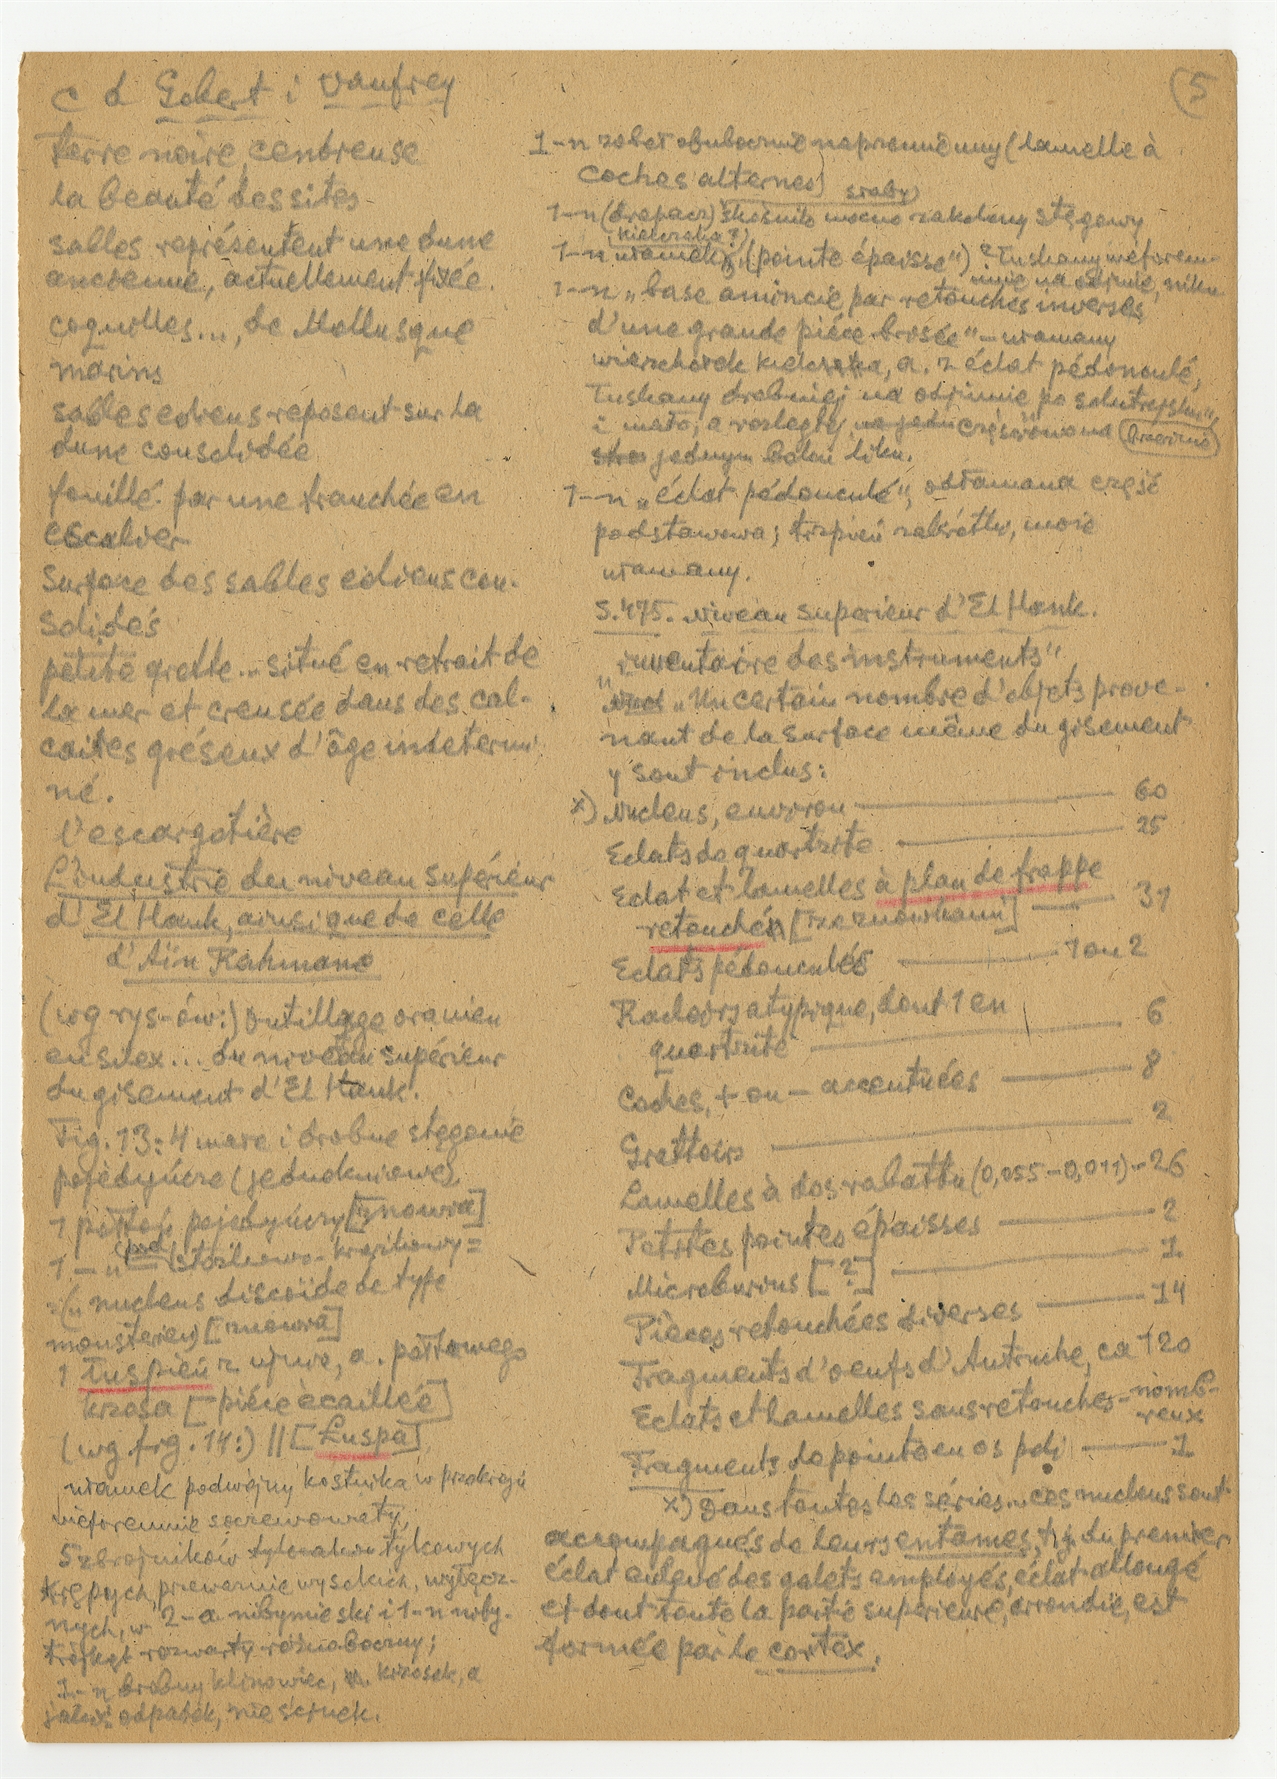 c d Gobert i Vaufrey
(5
terre noire, cendreuse
la beauté des sites
sables représentent une dune
ancienne, actuellement fixée.
coquilles..., de Mollusque
marins
sables eoliens reposent sur la
dune consolidée
fouillé par une tranchée en
escalier
Surface des sables eoliens con-
solidés
petite grotte... situé en retrait de
la mer et creusée dans des cal-
caires gréseux d'âge indetermi
né.
l'escargotière
L'industrie du niveau supérieur
d'El Hank, ainsi que de celle
d'Aïn Rahmane
(wg rys-ów:) Outillage oranien
en silex... du niveau supérieur
du gisement d'El Hank.
Fig. 13: 4 małe i drobne
pojedyńcze
1 pojedyńczy [znowa]
1 - n
=(„nucleus discoïde de type
mousterien) [znowa]
1 Łuspień z
krzosa [pièce écaillée]
(wg. frg. 14:) || [Łuspa]
ułamek podwójny kostnika w przekroju
nieforemnie soczewowaty,
5 zbrojników tylcowych
krępych, przeważnie wysokich,
nych, w 2-a i 1-n niby-
trójkąt rozwarty różnoboczny;
1-n drobny klinowiec, krzosek, a
jakiś odpadek, nie ścinek.
1-n obubocznie naprzemienny (lamelle à
coches alternes)
słaby
1-n (drapacz) skośnik mocno
1-n ułamek „(pointe épaisse") łuskany niforem-
nie na odzimie, niku
1-n „base amincie par retouches inverses
d'une grande pièce brisée" - ułamany
wierzchołek kielczaka, a. z éclat pédonculé,
łuskany drobniej na odzimie po solutrejsku",
i mało, a rozlegley częściowo na
jednym boku liku.
1-n „éclat pédonculé", odłamana część
podstawowa; trzpień krótki, może
ułamany.
S. 475. Niveau superieur d'El Hank.
„inventaire des instruments"
„Un certain nombre d'objets prove-
nant de la surface même du gisement
y sont inclus:
x) Nucleus, environ — 60
Eclats de quartzite — 25
Eclat et lamelles à plan de frappe
retouchés — 31
Eclats pédonculés — 1 ou 2
Racloirs atypique, dont 1 en
quartzite — 6
Coches, + ou – accentuées — 8
Grattoirs — 2
Lamelles à dos rabattu (0,055-0,011) - 26
Petites pointes épaisses — 2
Microburins [?] — 1
Pièces retouchées diverses — 14
Fragments d'oeufs d'Autruche, ca 120
Eclats et lamelles sans retouches - nomb-
reux
Fragments de pointe en os poli — 1
x) Dans toutes les séries... ces nucleus sont
accompagnés de leurs entames, tj. du premier
éclat enlevé des galets employés, éclat allongé
et dont toute la partie superieure, arrondie, est
formée par le cortex.